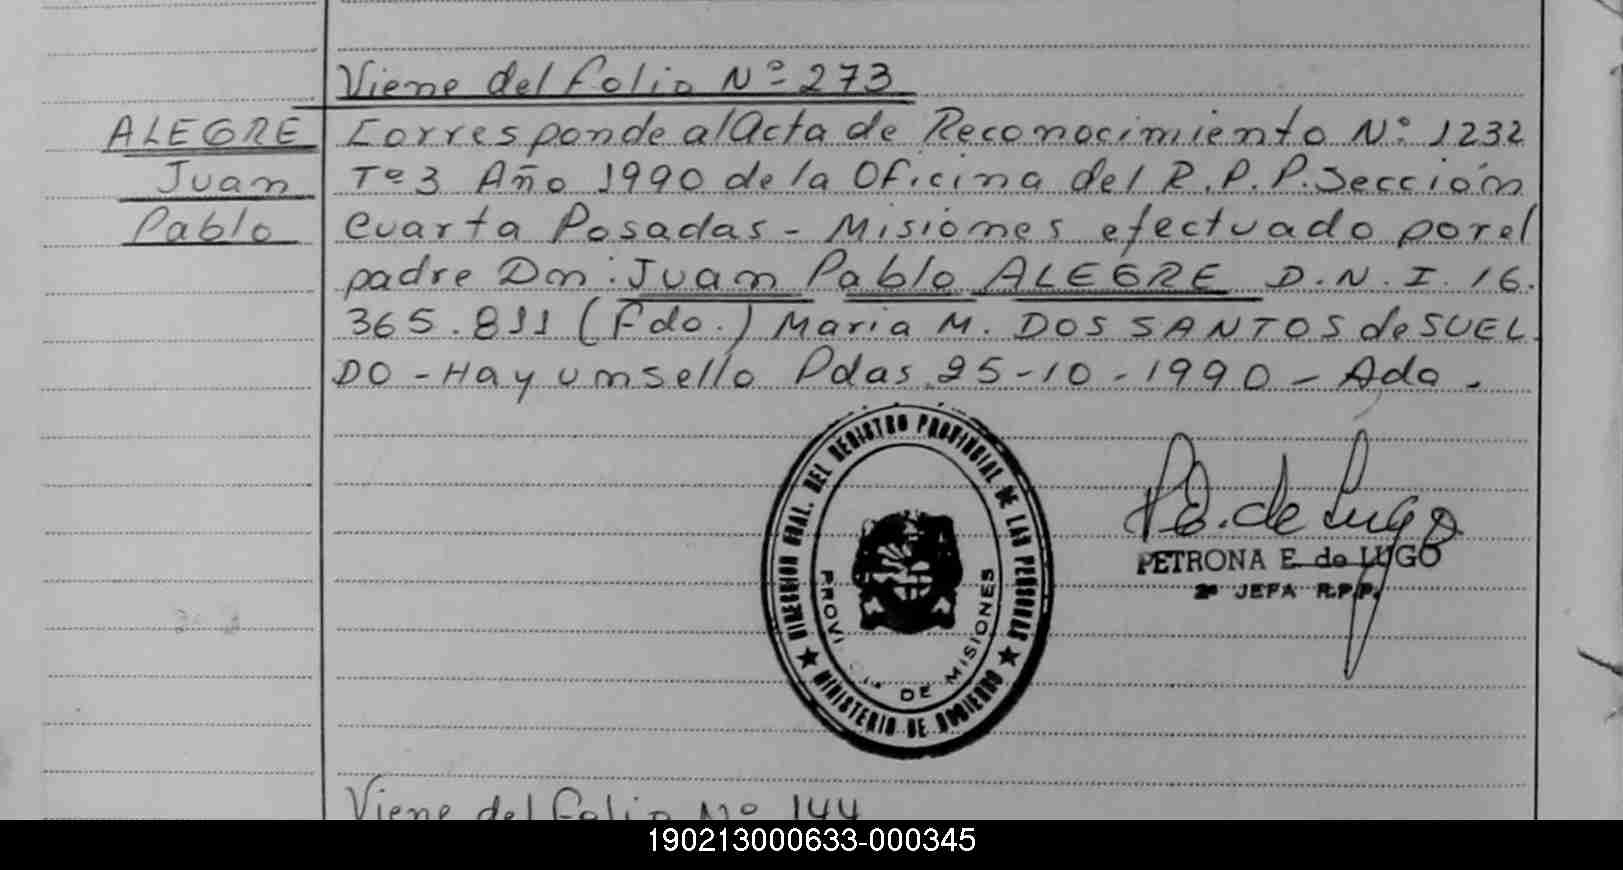 Viene del folio Nº 273
ALEGRE
Juan
Pablo
Corresponde al Acta de Reconocimiento Nº 1232
Tº 3 Año 1990 de la Oficina del R.P.P. Sección
Cuarta Posadas - Misiones efectuado por el
padre Dn: Juan Pablo ALEGRE D.N.I. 16.
365.811 (Fdo.) Maria M. DOS SANTOS de SUEL
DO - Hay un sello Pdas. 25-10-1990 - Ada.
DIRECCION GRAL. DEL REGISTRO PROVINCIAL DE LAS PERSONAS
MINISTERIO DE GOBIERNO
DE MISIONES
P.E. de Lugo
PETRONA E. de LUGO
2ª JEFA R.P.P.
Viene del folio Nº 144
190213000633-000345